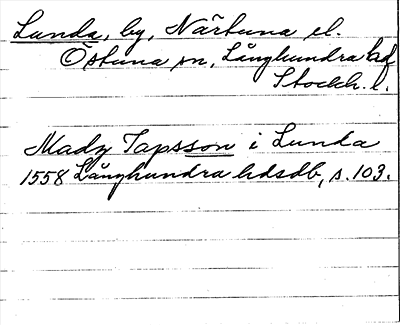 Lunda, by, Närtuna el.
Östuna sn, Långhundra hd
Stockh. l.
Madz Tapsson i Lunda
1558 Långhundra hdsdb, s. 103.